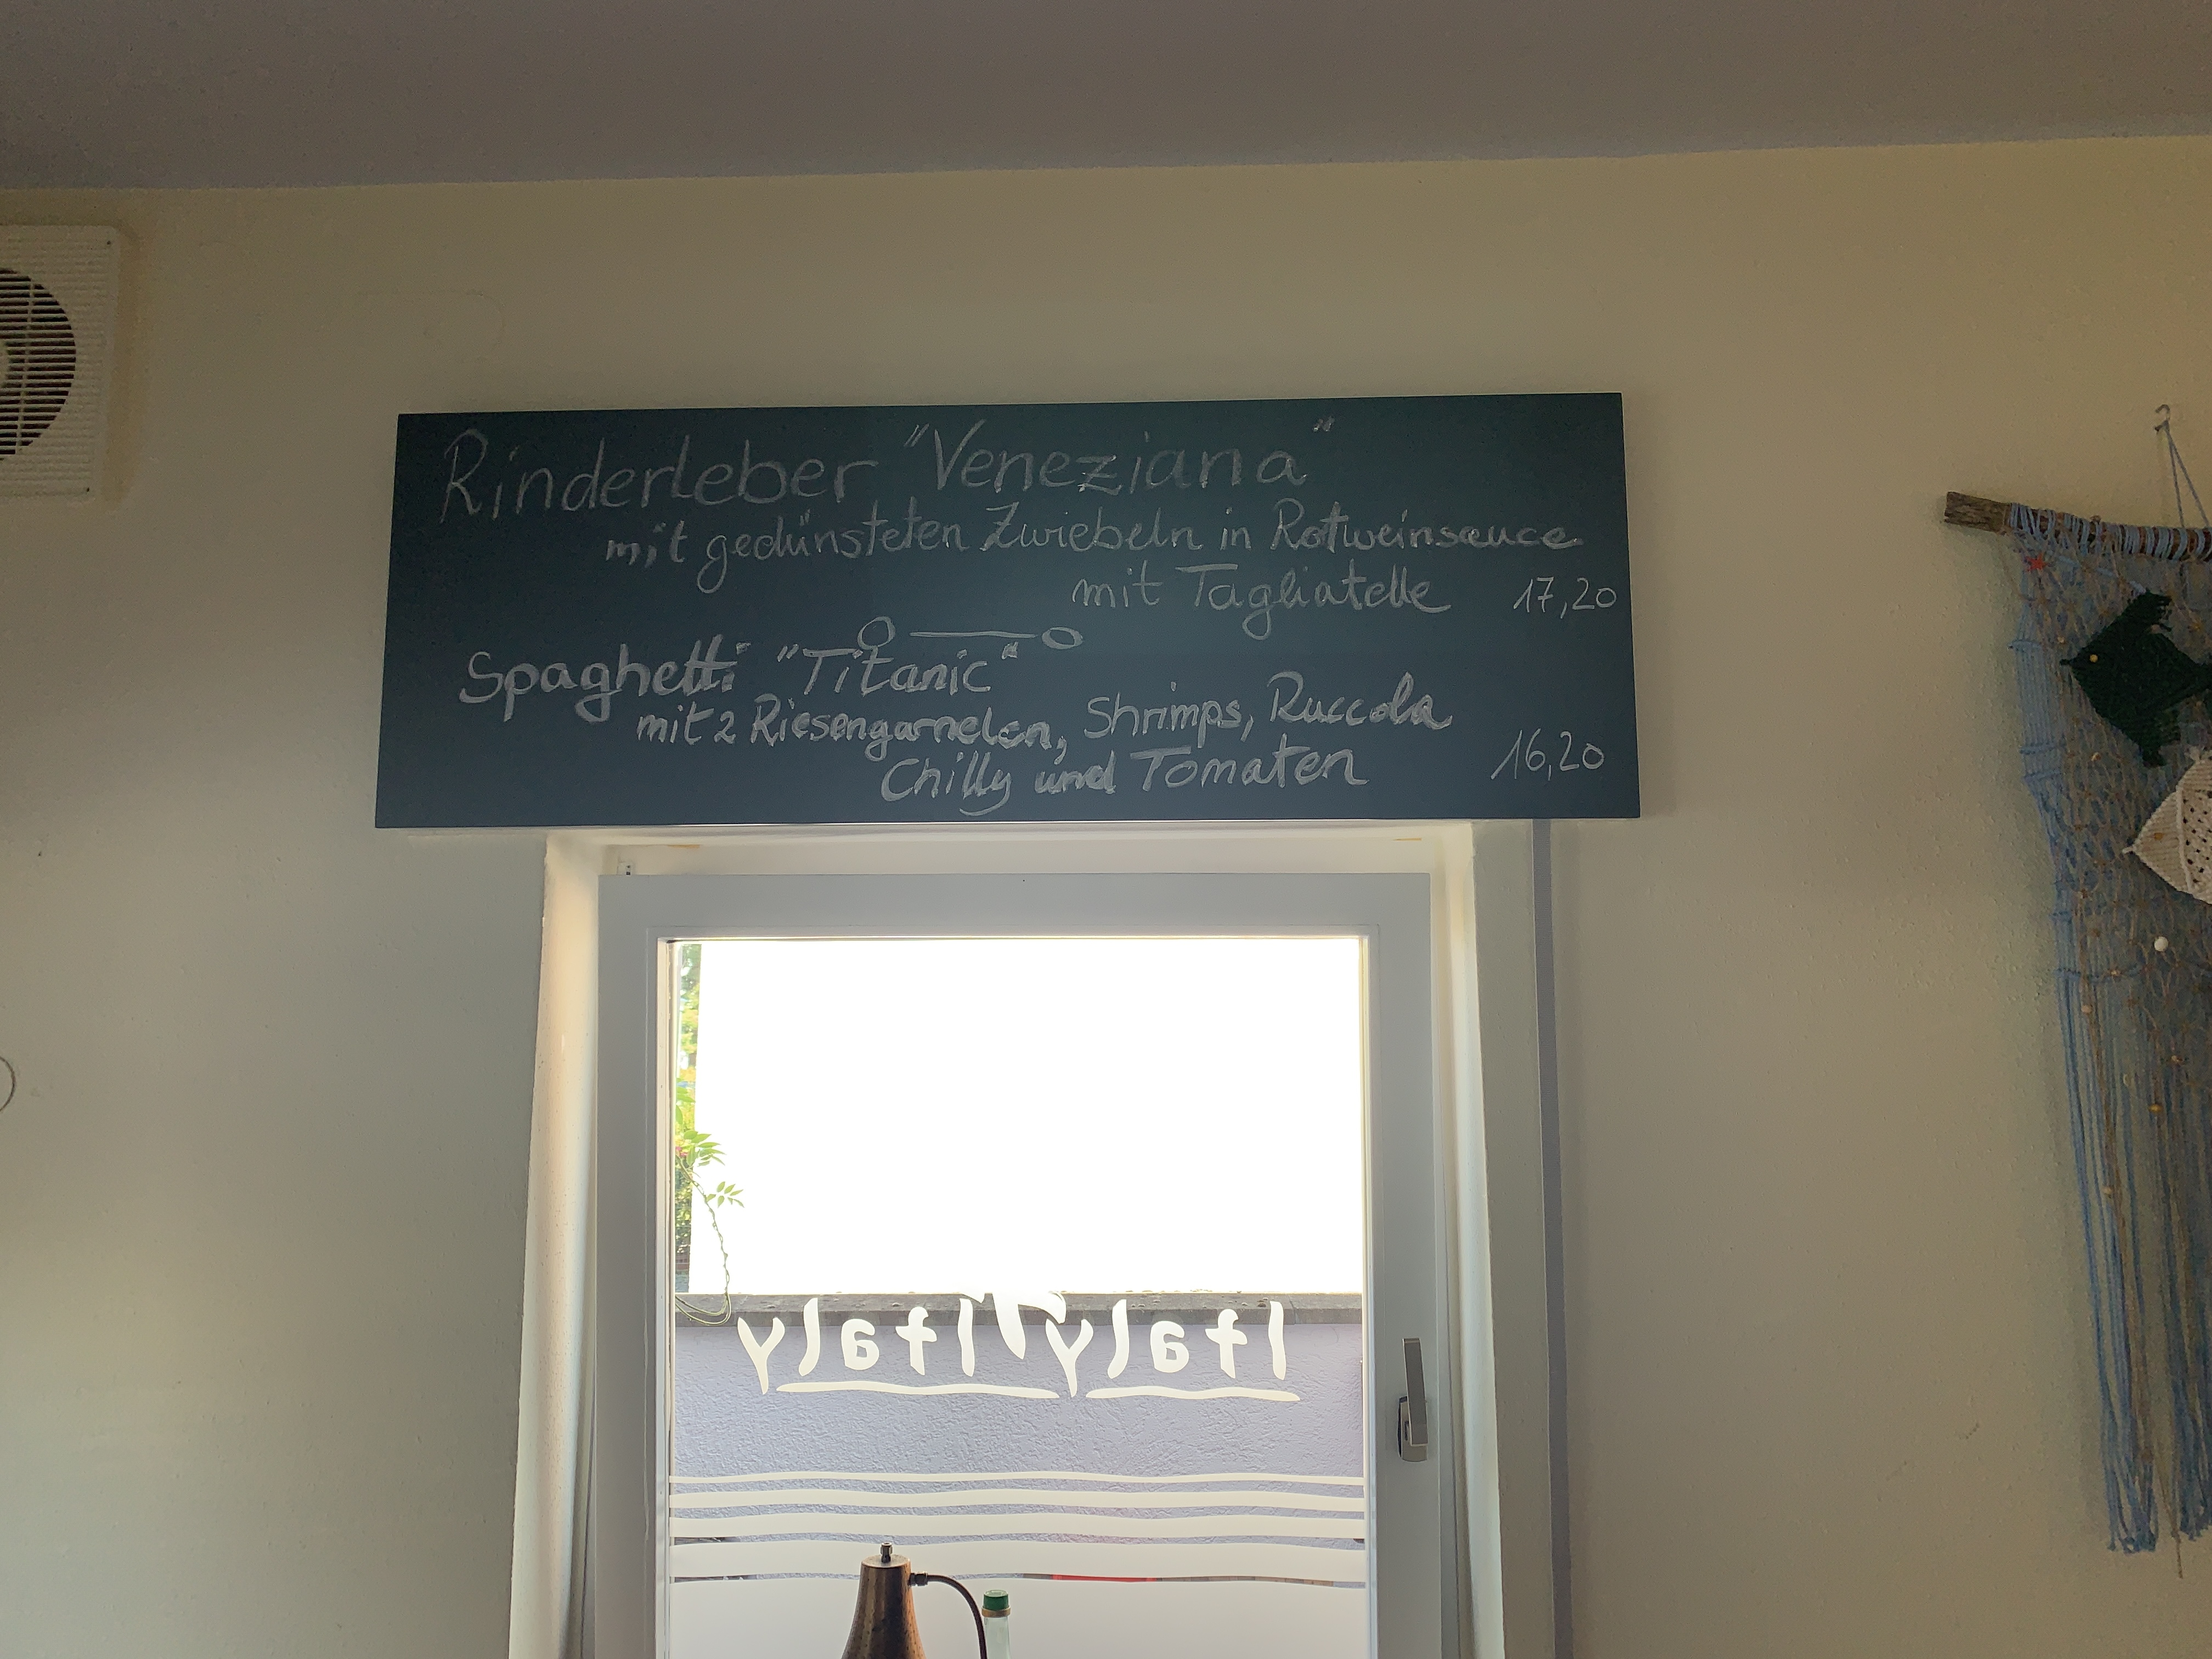 Rinderleber "Veneziana"
mit gedünsteten Zwiebeln in Rotweinsauce
mit Tagliatelle 17,20
Spaghetti "Titanic"
mit 2 Riesengarnelen, Shrimps, Ruccola
Chilly und Tomaten 16,20
Italy Italy